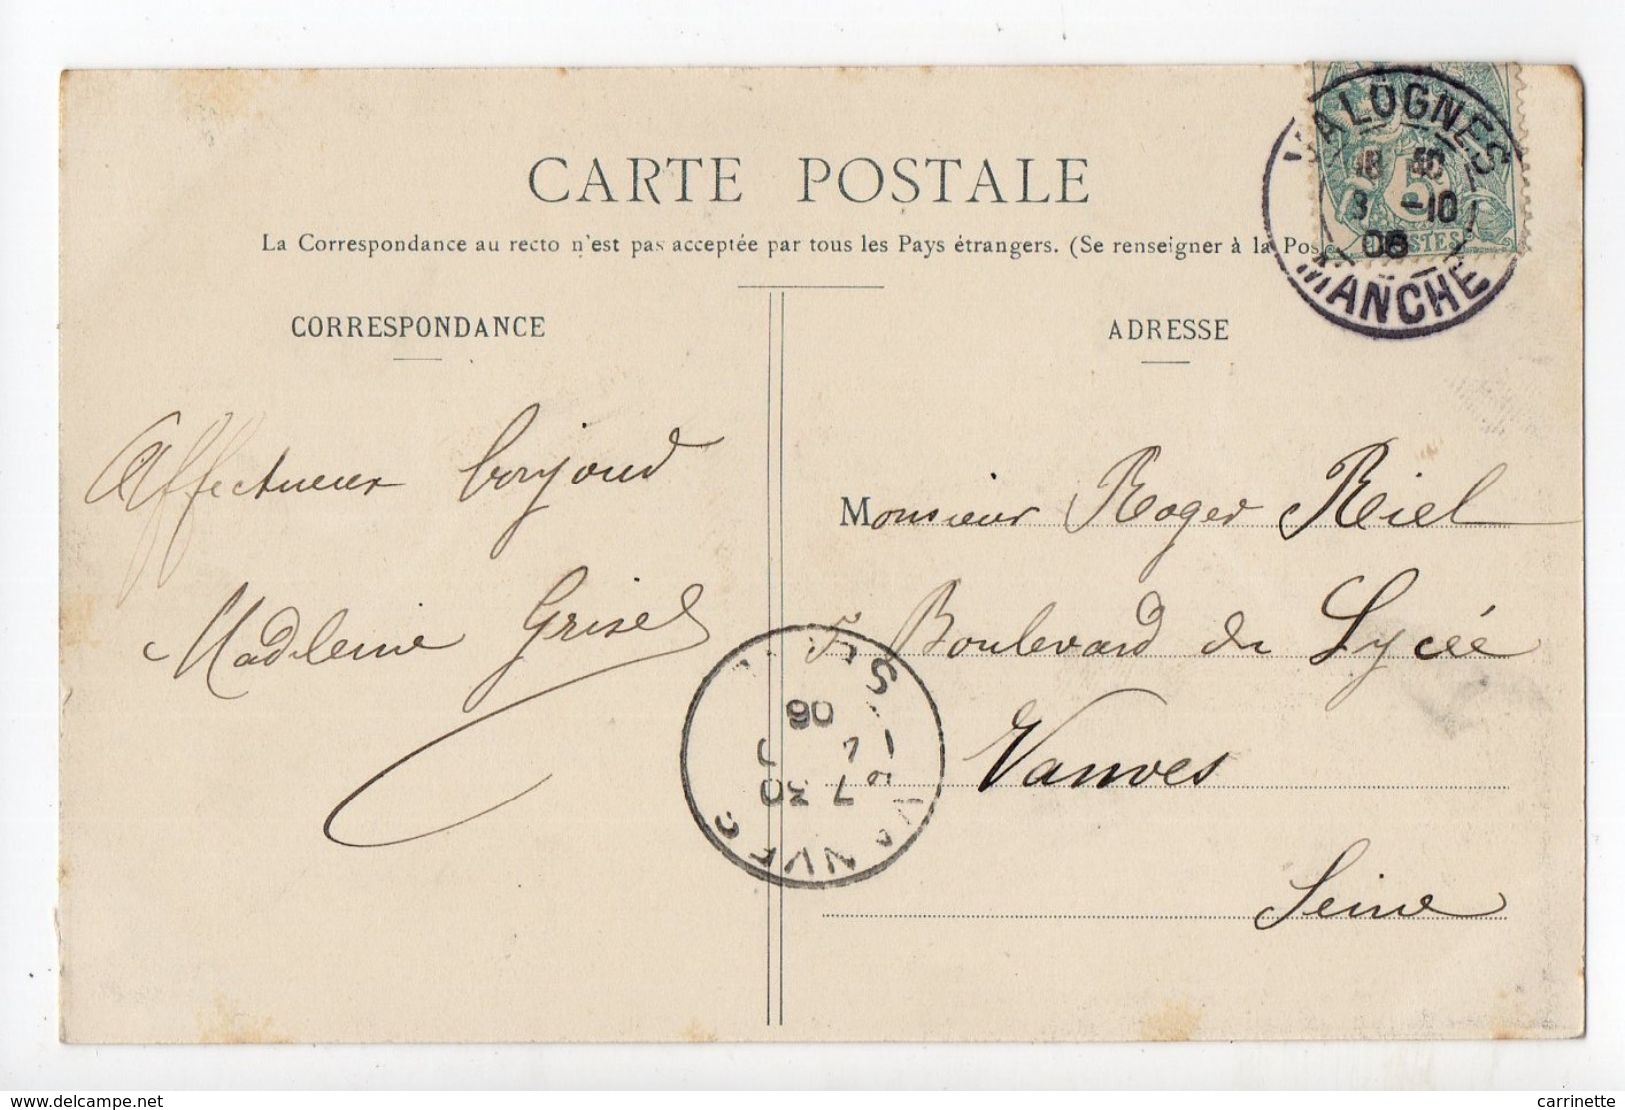 CARTE POSTALE
La Correspondance au recto n'est pas acceptée par tous les Pays étrangers. (Se renseigner à la Pos
CORRESPONDANCE
ADRESSE
VALOGNES
18 40
3 -10
06
MANCHE
5
POSTES
Affectueux bonjour
Madeleine Grisel
Monsieur Roger Riel
5 Boulevard du Lycée
Vanves
Seine
VANVES
7 30
06
www.delcampe.net
carrinette